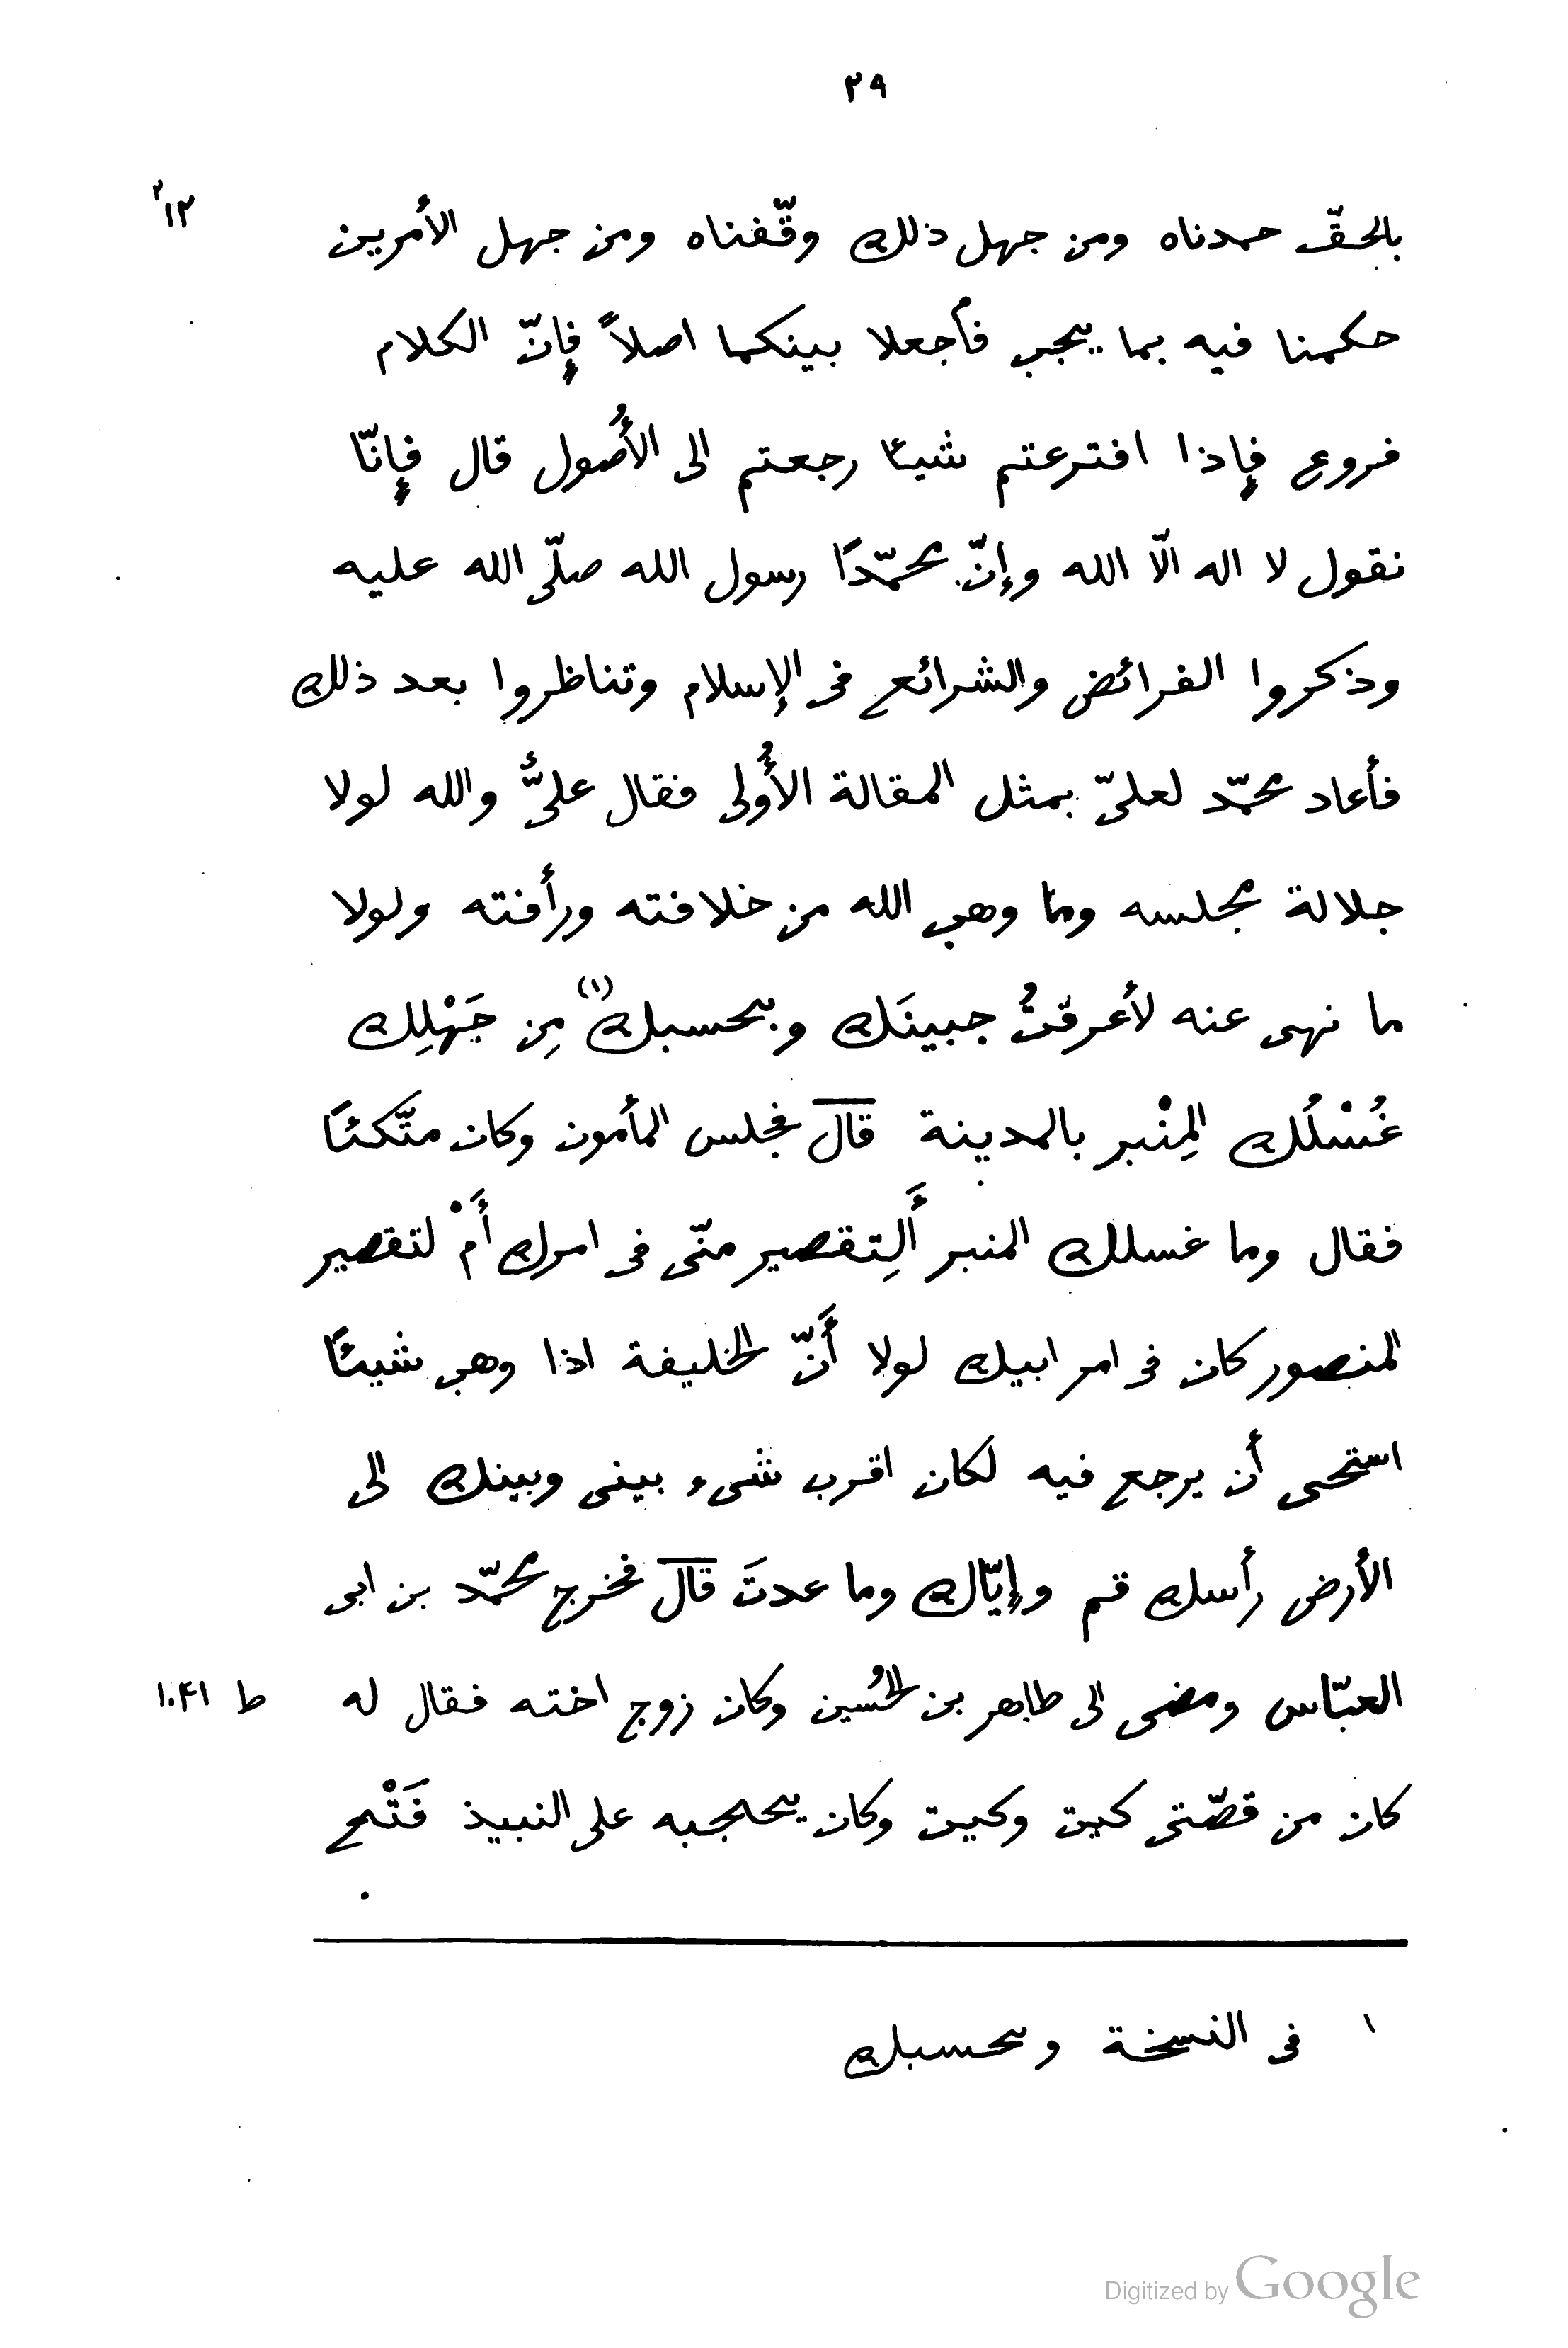 ٢٩
١٢٢
بالحقّ حمدناه ومن جهل ذلك وقّفناه ومن جهل الأمرين
حكمنا فيه بما يجب فأجعلا بينكما اصلاً فإنّ الكلام
فروع فإذا افترعتم شيئا رجعتم الى الأُصول قال فإنّا
نقول لا اله الّا الله وإنّ محمّدًا رسول الله صلّى الله عليه
وذكروا الفرائض والشرائع فى الإسلام وتناظروا بعد ذلك
فأعاد محمّد لعلىّ بمثل المقالة الأُولى فقال علىٌّ والله لولا
جلالة مجلسه وما وهب الله من خلافته ورأفته ولولا
ما نهى عنه لأعرقتُ جبينَك وبحسبك(١) مِن جَهْلِك
غُسْلُك المِنْبر بالمدينة قال فجلس المأمون وكان متّكئًا
فقال وما غسلك المنبر أَلِتقصير منّى فى امرك أَمْ لتقصير
المنصور كان فى امر ابيك لولا أَنّ الخليفة اذا وهب شيئًا
استحى أن يرجع فيه لكان اقرب شىء بينى وبينك الى
الأرض رأسك قم وإيّاك وما عدتَ قال فخرج محمّد بن ابى
العبّاس ومضى الى طاهر بن الحُسين وكان زوج اخته فقال له ط ١٠٤١
كان من قصّتى كيت وكيت وكان يحجبه على النبيذ فَتْح
١ فى النسخة وحسبك
Digitized by Google